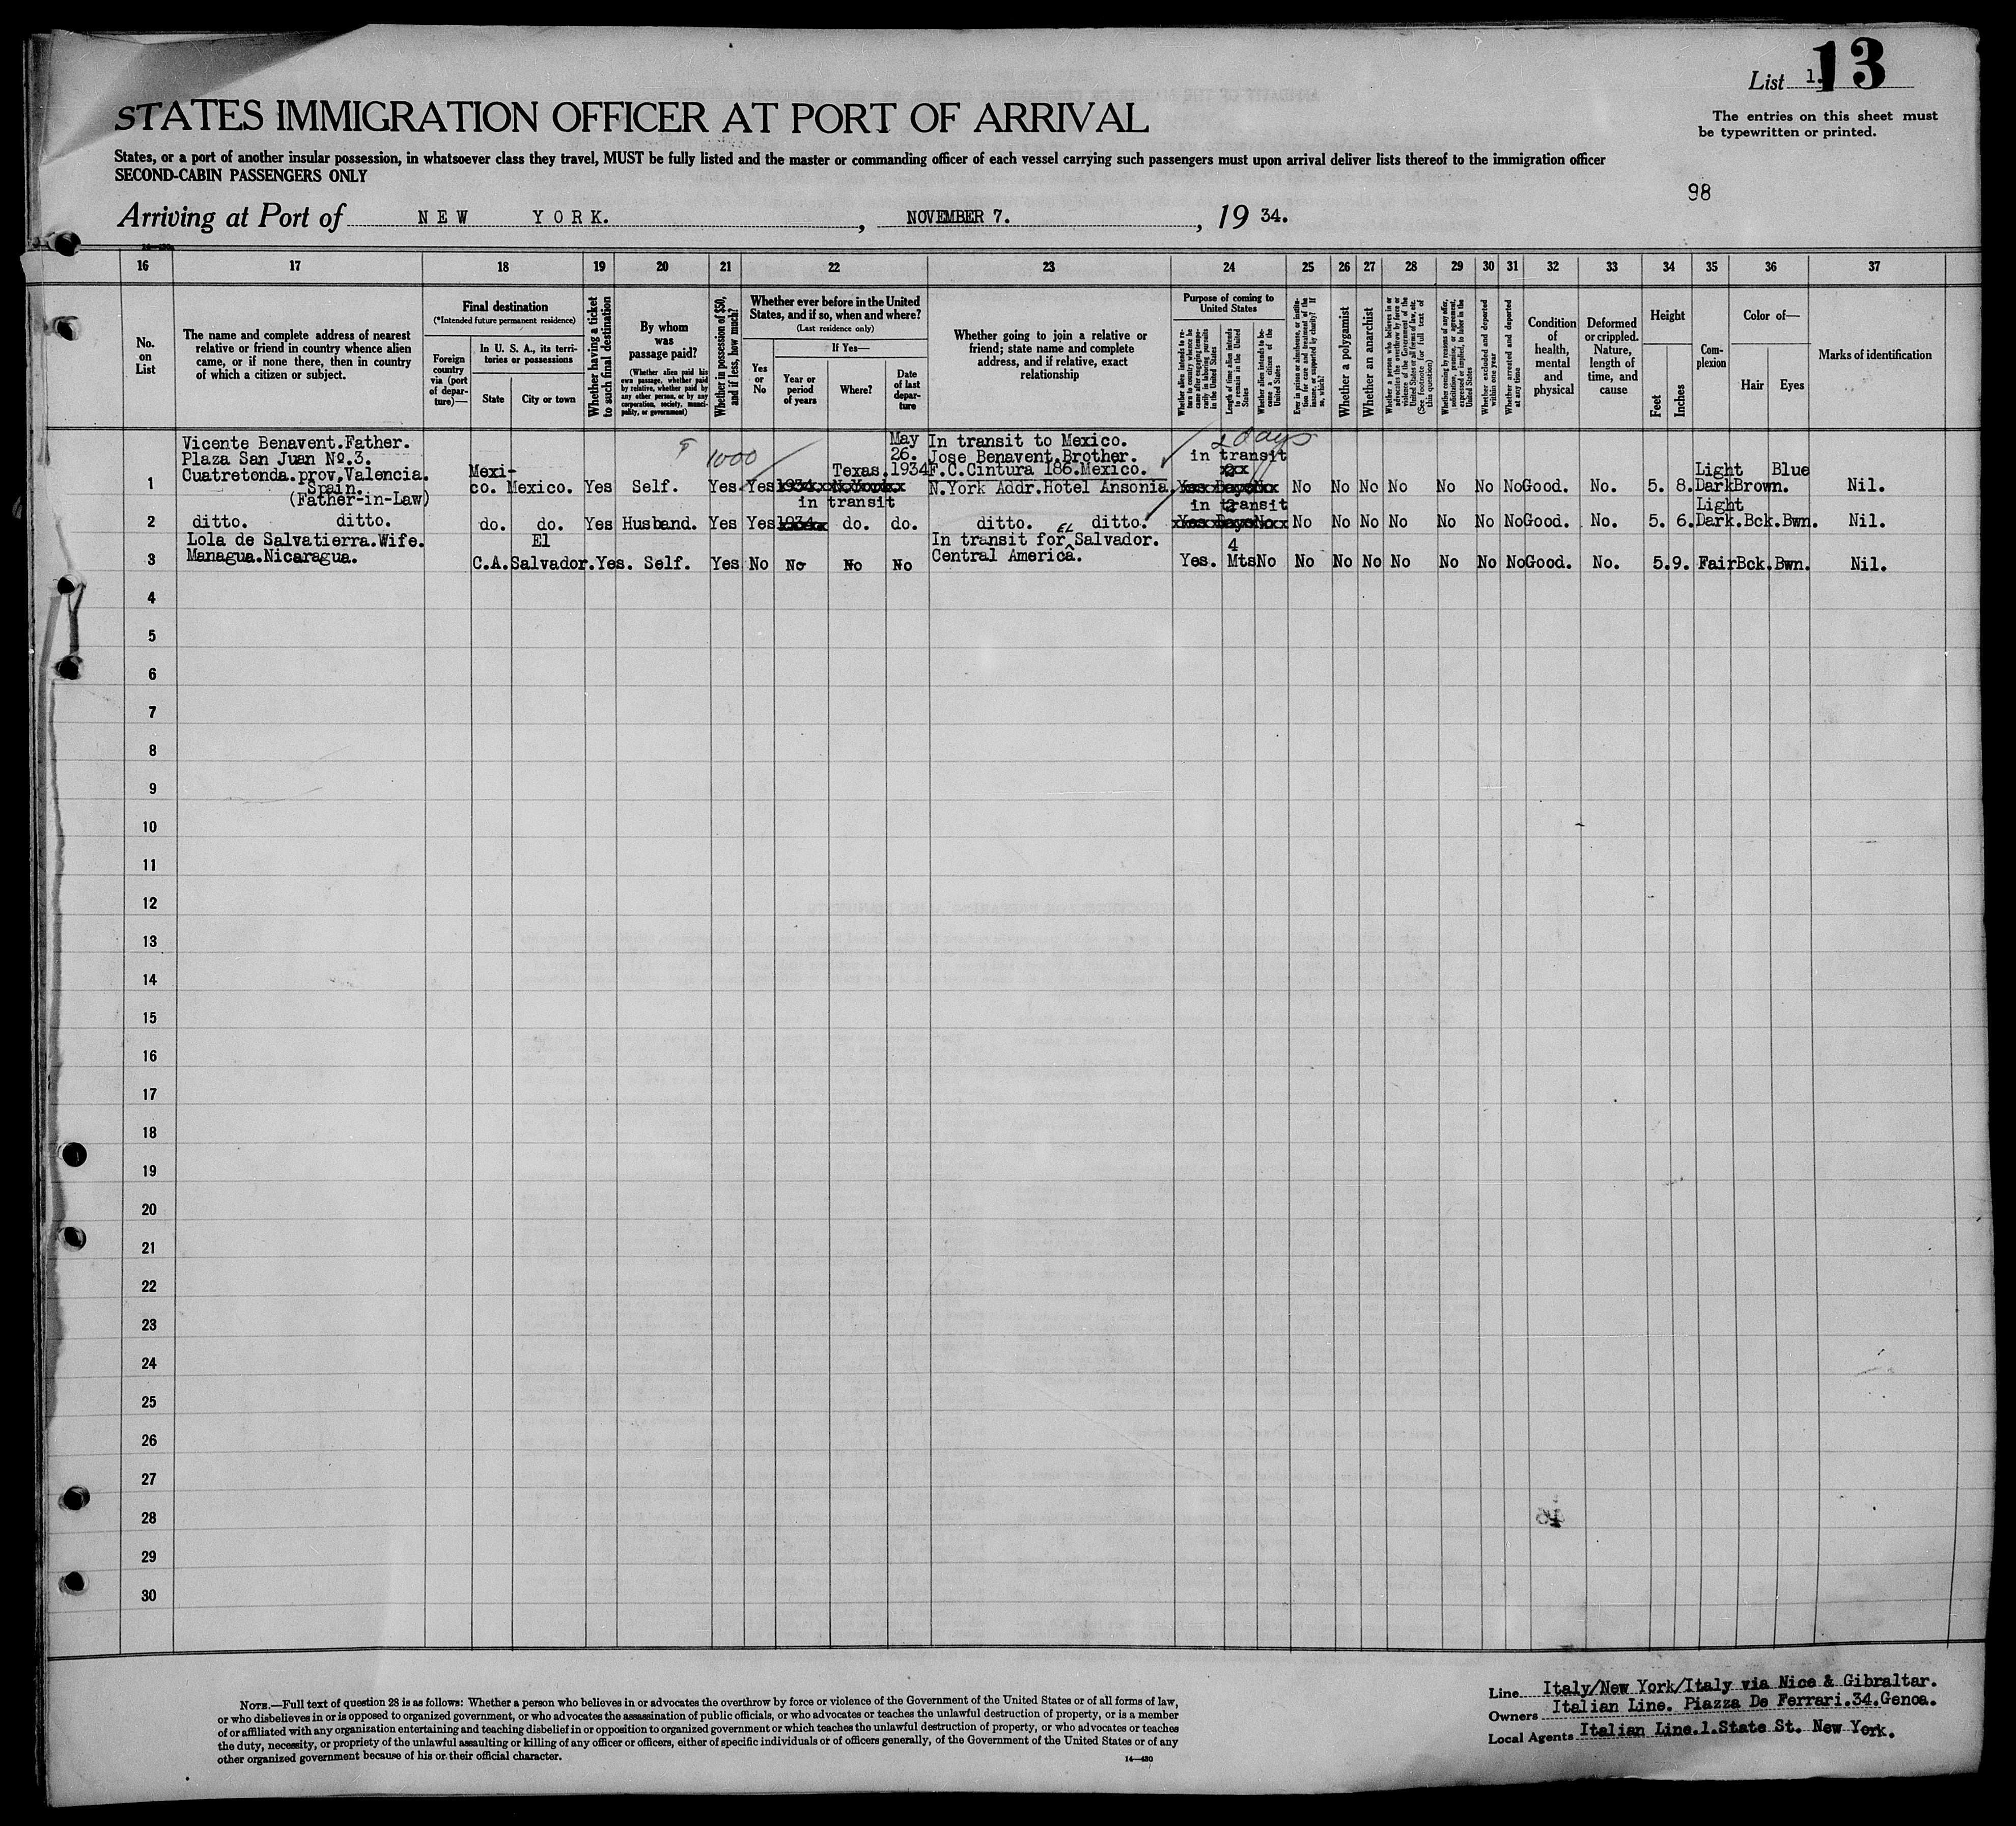 List 1. 13
The entries on this sheet must
be typewritten or printed.
STATES IMMIGRATION OFFICER AT PORT OF ARRIVAL
States, or a port of another insular possession, in whatsoever class they travel, MUST be fully listed and the master or commanding officer of each vessel carrying such passengers must upon arrival deliver lists thereof to the immigration officer
SECOND-CABIN PASSENGERS ONLY
98
Arriving at Port of NEW YORK. , NOVEMBER 7. , 19 34.
16 17 18 19 20 21 22 23 24 25 26 27 28 29 30 31 32 33 34 35 36 37
No. on List
The name and complete address of nearest
relative or friend in country whence alien
came, or if none there, then in country
of which a citizen or subject.
Final destination
(*Intended future permanent residence)
Foreign country via (port of departure)—
In U. S. A., its territories or possessions
State
City or town
Whether having a ticket to such final destination
By whom was passage paid?
(Whether alien paid his own passage, whether paid by relative, whether paid by any other person, or by any corporation, society, municipality, or government)
Whether in possession of $50, and if less, how much?
Whether ever before in the United States, and if so, when and where?
(Last residence only)
Yes or No
If Yes—
Year or period of years
Where?
Date of last departure
Whether going to join a relative or
friend; state name and complete
address, and if relative, exact
relationship
Purpose of coming to United States
Whether alien intends to return to country whence he came after engaging temporarily in laboring pursuits in the United States
Length of time alien intends to remain in the United States
Whether alien intends to become a citizen of the United States
Ever in prison or almshouse, or institution for care and treatment of the insane, or supported by charity? If so, which?
Whether a polygamist
Whether an anarchist
Whether a person who believes in or advocates the overthrow by force or violence of the Government of the United States or all forms of law, etc. (See footnote for full text of this question)
Whether coming by reason of any offer, solicitation, promise, or agreement, expressed or implied, to labor in the United States
Whether excluded and deported within one year
Whether arrested and deported at any time
Condition of health, mental and physical
Deformed or crippled. Nature, length of time, and cause
Height
Feet
Inches
Complexion
Color of—
Hair
Eyes
Marks of identification
Vicente Benavent.Father. May In transit to Mexico. 2 days
Plaza San Juan Nº.3. 1000 26. Jose Benavent.Brother. in transit
Cuatretonda.prov.Valencia. Mexi- Texas. 1934 F.C.Cintura 186.Mexico. Light Blue
1 Spain. co. Mexico. Yes Self. Yes Yes 1934 N.York N.York Addr.Hotel Ansonia. Yes Days No No No No No No No No Good. No. 5. 8. Dark Brown. Nil.
(Father-in-Law) in transit in transit Light
2 ditto. ditto. do. do. Yes Husband. Yes Yes 1934 do. do. ditto. ditto. Yes Days No No No No No No No No Good. No. 5. 6. Dark. Bck. Bwn. Nil.
Lola de Salvatierra.Wife. El In transit for EL Salvador. 4
3 Managua.Nicaragua. C.A. Salvador. Yes. Self. Yes No No No No Central America. Yes. Mts No No No No No No No No Good. No. 5. 9. Fair Bck. Bwn. Nil.
4
5
6
7
8
9
10
11
12
13
14
15
16
17
18
19
20
21
22
23
24
25
26
27
28
29
30
NOTE.—Full text of question 28 is as follows: Whether a person who believes in or advocates the overthrow by force or violence of the Government of the United States or of all forms of law,
or who disbelieves in or is opposed to organized government, or who advocates the assassination of public officials, or who advocates or teaches the unlawful destruction of property, or is a member
of or affiliated with any organization entertaining and teaching disbelief in or opposition to organized government or which teaches the unlawful destruction of property, or who advocates or teaches
the duty, necessity, or propriety of the unlawful assaulting or killing of any officer or officers, either of specific individuals or of officers generally, of the Government of the United States or of any
other organized government because of his or their official character.
14—430
Line Italy/New York/Italy via Nice & Gibraltar.
Owners Italian Line. Piazza De Ferrari.34.Genoa.
Local Agents Italian Line.1.State St. New York.